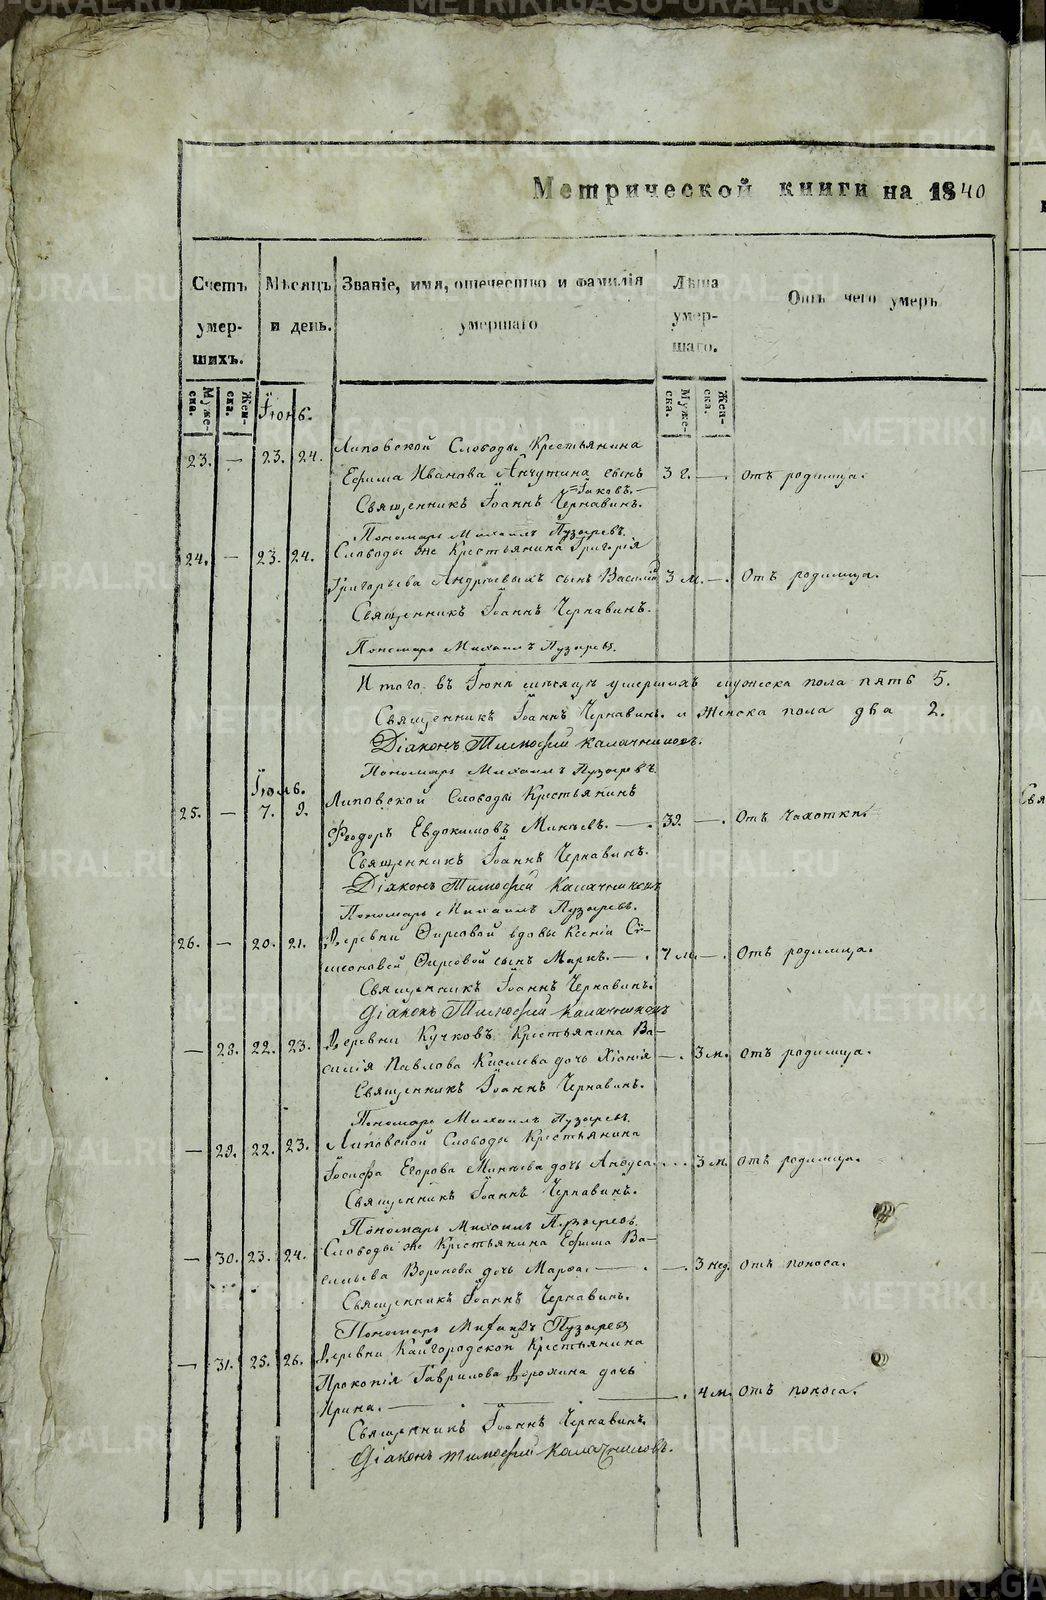 Метрической книги на 1840
Счетъ умер- шихъ.
Мѣсяцъ и день.
Званіе, имя, отечество и фамилія умершаго
Лѣта умер- шаго.
Отъ чего умеръ
Муже- ска.
Жен- ска.
Муже- ска.
Жен- ска.
Іюнь.
23. — 23. 24. Липовской Слободы Крестьянина
Ефима Иванова Анчутина сынъ 3 г. — Отъ родимца.
Іаковъ. —
Священникъ Іоаннъ Чернавинъ.
Пономарь Михаилъ Пузыревъ.
24. — 23. 24. Слободы же Крестьянина Григорія
Григорьева Андреевыхъ сынъ Василій 3 м. — Отъ родимца.
Священникъ Іоаннъ Чернавинъ.
Пономарь Михаилъ Пузыревъ.
Итого въ Іюнѣ мѣсяцѣ умершихъ мужеска пола пять 5.
Священникъ Іоаннъ Чернавинъ. и Женска пола два 2.
Діаконъ Тимофей Калачниковъ.
Пономарь Михаилъ Пузыревъ
Іюль.
25. — 7. 9. Липовской Слободы Крестьянинъ
Феодоръ Евдокимовъ Минѣевъ. — 32. — Отъ Чахотки.
Священникъ Іоаннъ Чернавинъ.
Діаконъ Тимофей Калачниковъ
Пономарь Михаилъ Пузыревъ.
26. — 20. 21. Деревни Фирсовой вдовы Ксеніи Сѵ-
меоновой Фирсовой сынъ Маркъ. — 7 м. — Отъ родимца.
Священникъ Іоаннъ Чернавинъ.
Діаконъ Тимофей Калачниковъ
— 28. 22. 23. Деревни Кучковъ Крестьянина Ва-
силія Павлова Киселева дочь Хіонія — 3 м. Отъ родимца.
Священникъ Іоаннъ Чернавинъ.
Пономарь Михаилъ Пузыревъ.
— 29. 22. 23. Липовской Слободы Крестьянина
Іосифа Егорова Минѣева дочь 3 м. Отъ родимца.
Священникъ Іоаннъ Чернавинъ.
Пономарь Михаилъ Пузыревъ
— 30. 23. 24. Слободы же Крестьянина Ефима Ва-
сильева Воронова дочь Марѳа. — 3 нед. Отъ поноса.
Священникъ Іоаннъ Чернавинъ.
Пономарь Михаилъ Пузыревъ
— 31. 25. 26. Деревни Кайгородской Крестьянина
Прокопія Гаврилова дочь
Ирина. — 4 м. Отъ поноса.
Священникъ Іоаннъ Чернавинъ.
Діаконъ Тимофей Калачниковъ.
Свя
METRIKI.GASO-URAL.RU